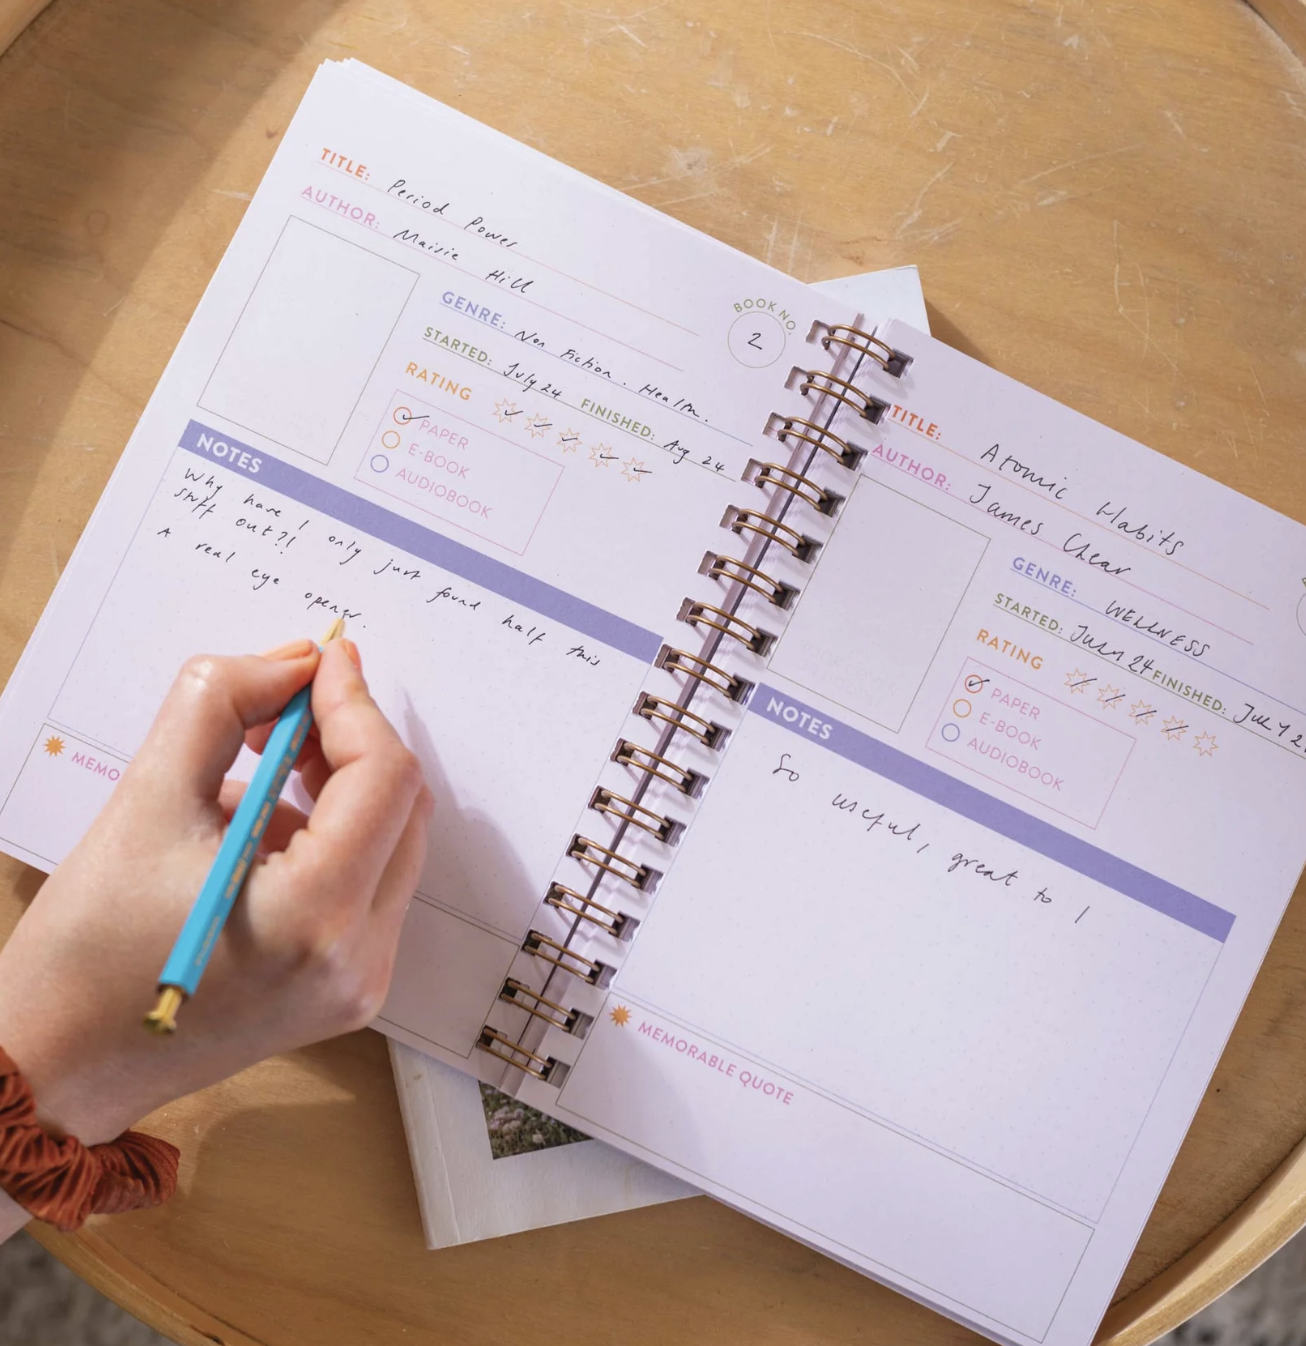 TITLE: Period Power
AUTHOR: Maisie Hill
BOOK NO.
2
GENRE: Non Fiction. Health.
STARTED: July 24 FINISHED: Aug 24
RATING
PAPER
E-BOOK
AUDIOBOOK
NOTES
Why have I only just found half this
stuff out?!
A real eye opener.
MEMO
TITLE: Atomic Habits
AUTHOR: James Clear
GENRE: WELLNESS
STARTED: JULY 24 FINISHED: JULY 2
RATING
PAPER
E-BOOK
AUDIOBOOK
NOTES
So useful, great to
MEMORABLE QUOTE